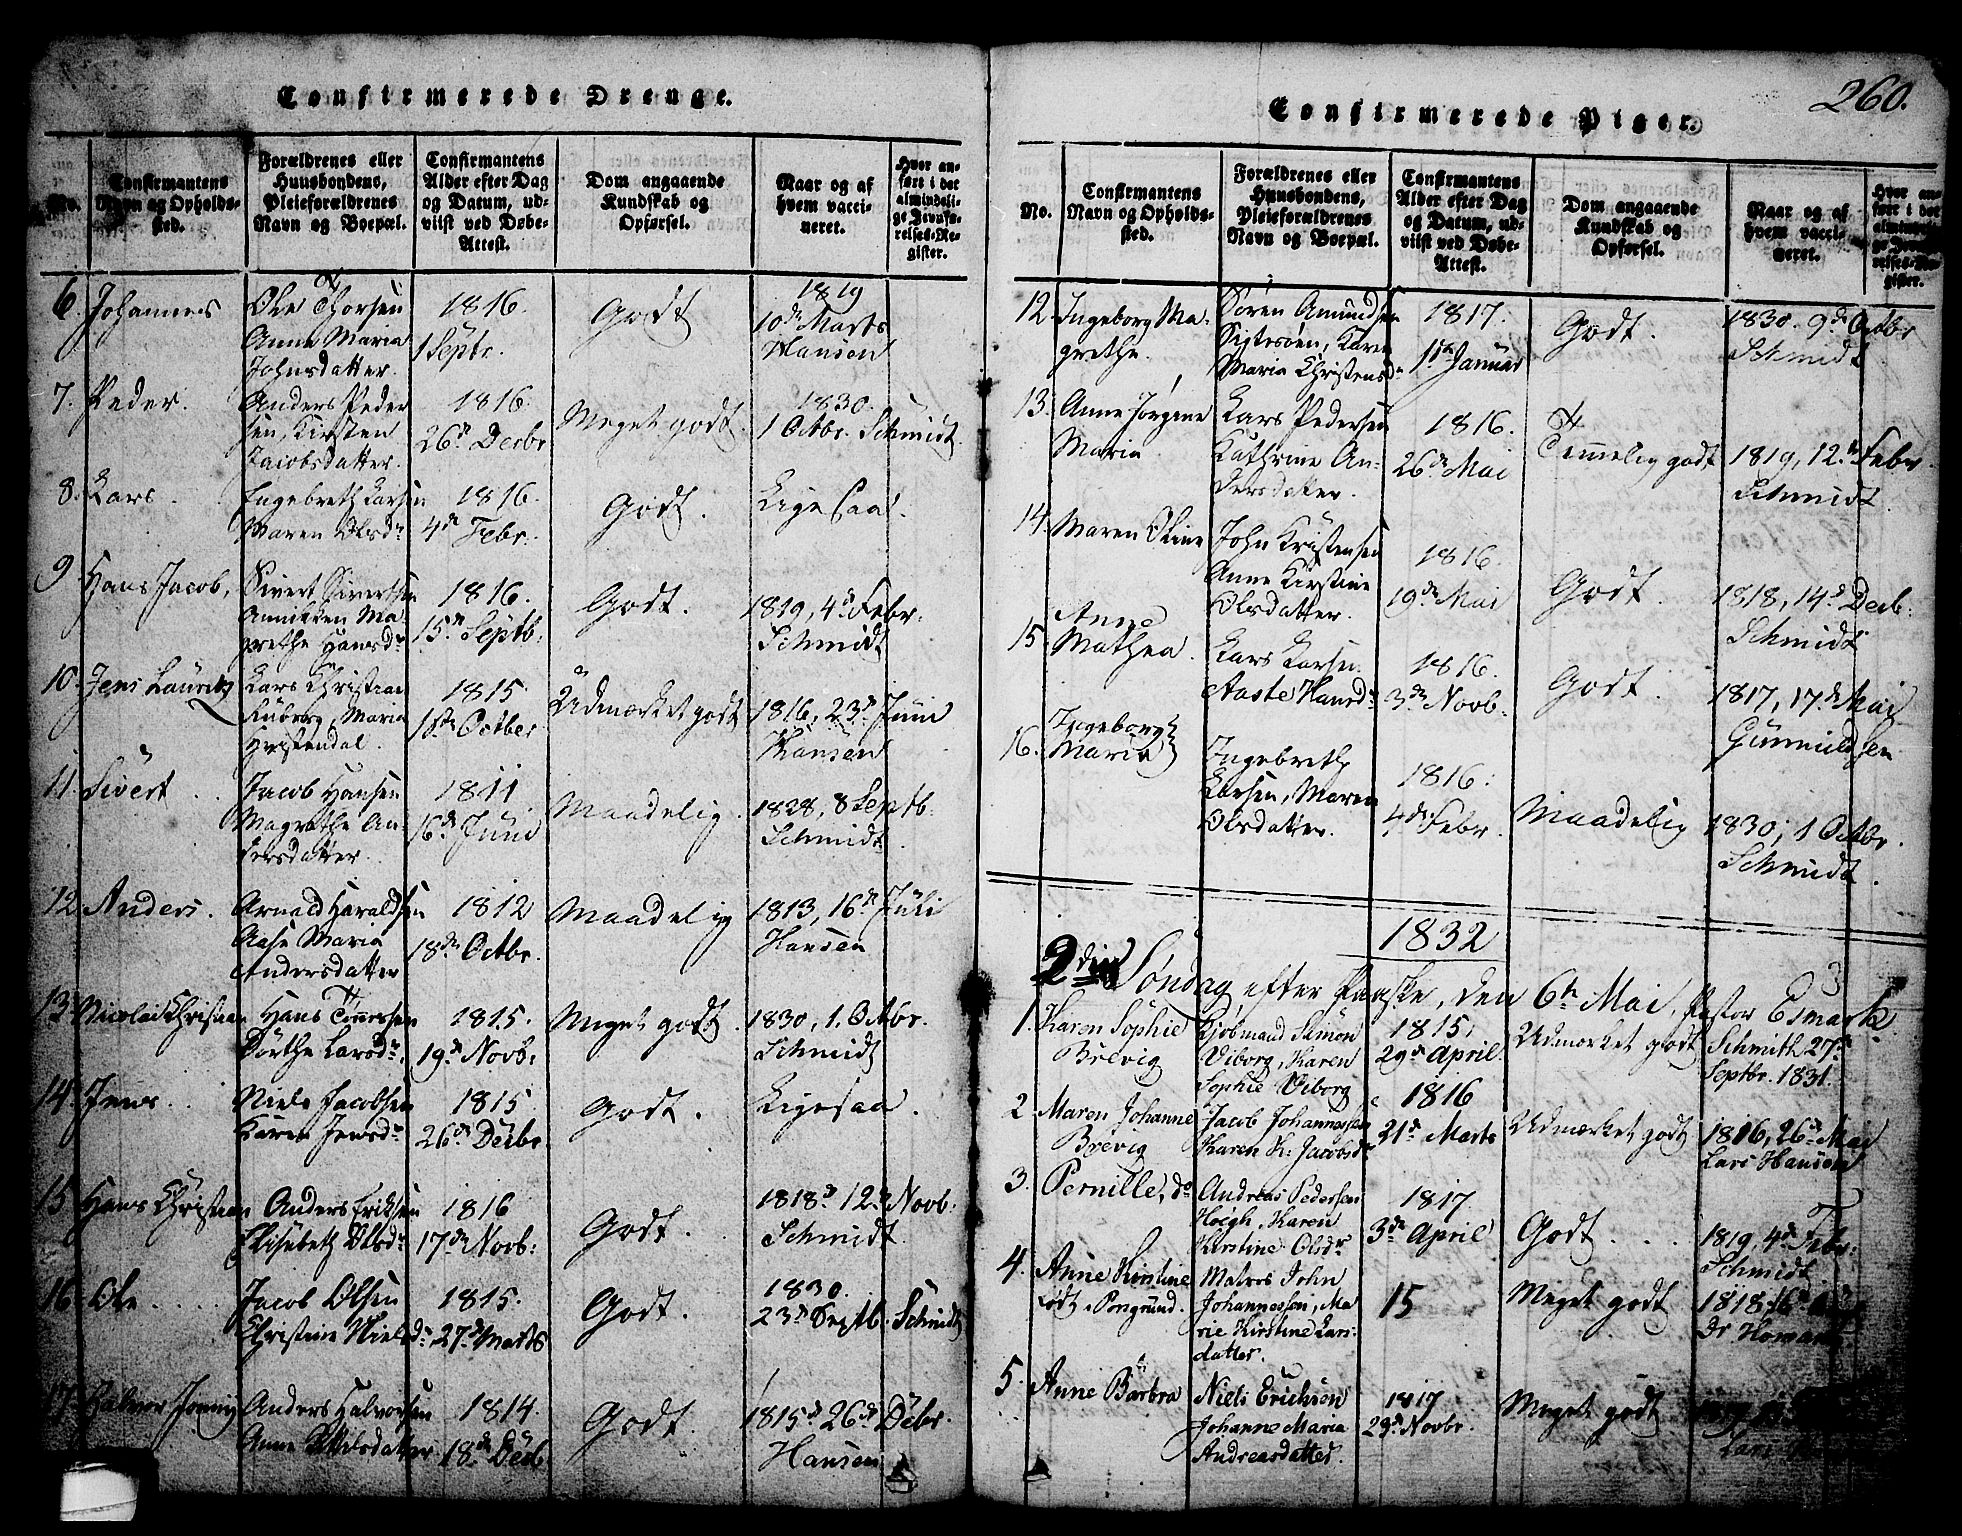 260.
Confirmerede Drenge.
No.
Confirmantens Navn og Opholds-sted.
Forældrenes eller Huusbondens, Pleieforældrenes Navn og Boepæl.
Confirmantens Alder efter Dag og Datum, ud-viist ved Døbe-Attest.
Dom angaaende Kundskab og Opførsel.
Naar og af hvem vacci-neret.
Hvor an-ført i det almindeli-ge Jevnfø-relses-Re-gister.
6. Johannes
Ole Thorsen
Anne Maria
Johnsdatter.
1816.
1 Septr.
Godt
1819
10de Marts
Hansen
7. Peder.
Anders Peder
sen, Kirsten
Jacobsdatter.
1816.
26de Decbr
Meget godt.
1830.
1 Octbr. Schmidt.
8. Lars.
Engebreth Larsen
Maren Olsdr
1816.
4de Febr.
Godt.
Ligesaa.
9 Hans Jacob,
Sivert Sivertsen
Annikken Ma-
grethe Hansdr
1816.
15de Septb.
Godt.
1819, 4de Febr.
Schmidt
10. Jens Lauritz
Lars Christian
Maria
1815
1ste Octber
Udmærket godt
1816, 23de Juni
Hansen
11. Sivert
Jacob Hansen
Magrethe An-
dersdatter
1811
16de Juni
Maadelig.
1828, 8 Septb.
Schmidt
12. Anders.
Arnold Haraldsen
Aase Maria
Andersdatter
1812
18de Octbr.
Maadelig
1813, 16de Juli
Hansen
13. Nicolai Christian
Hans Tønnesen
Dorthe Larsdr.
1815.
19de Novb.
Meget godt.
1830, 1. Octbr.
Schmidt
14. Jens.
Niels Jacobsen
Karen Jensdr
1815
26de Decbr.
Godt.
Ligesaa.
15 Hans Christian
Anders Eriksen
Elisabeth Olsdr
1816
17de Novb:
Godt.
1818 12te Novb:
Schmidt.
16. Ole
Jacob Olsen
Christine Nielsdr
1815.
27de Marts
Godt.
1830.
23de Septb. Schmidt
17. Halvor
Anders Halvorsen
Anne
1814.
18de Decb.
Godt.
1815 26de Decbr.
Hansen
Confirmerede Piger.
No.
Confirmantens Navn og Opholds-sted.
Forældrenes eller Huusbondens, Pleieforældrenes Navn og Boepæl.
Confirmantens Alder efter Dag og Datum, ud-viist ved Døbe-Attest.
Dom angaaende Kundskab og Opførsel.
Naar og af hvem vacci-neret.
Hvor an-ført i det almindeli-ge Jevnfø-relses-Re-gister.
12. Ingeborg Ma-
grethe.
Søren Amundsen
Karen
Maria Christensdr
1817.
1ste Januar
Godt.
1830. 9de Octbr
Schmidt
13. Anne Jørgine
Maria
Lars Pedersen
Kathrine An-
dersdatter.
1816.
26de Mai
Temmelig godt
1819, 12te Febr.
Schmidt.
14. Maren Oline
John Kristensen
Anne Kirstine
Olsdatter.
1816.
19de Mai
Godt.
1818, 14de Decb.
Schmidt
15. Anne
Mathea.
Lars Larsen
Aaste Hansdr
1816.
3de Novb.
Godt.
1817, 17de Mai
Gunnuldsen
16. Ingeborg
Maria
Ingebreth
Larsen, Maren
Olsdatter.
1816.
4de Febr.
Maadelig
1830, 1 Octbr.
Schmidt.
1832
2den Søndag efter Paaske, den 6te Mai, Pastor Esmark.
1. Karen Sophie
Brevig
Kjøbmand Simon
Viborg, Karen
Sophie Viborg
1815
29de April.
Udmærket godt
Schmith 27de
Septbr. 1831.
2 Maren Johanne
Brevig
Jacob Johannessen
Karen K. Jacobsdr
1816
21de Marts
Udmærket godt
1816, 26de Mai
Lars Hansen
3. Pernille, do
Andreas Pedersen
Høegh, Karen
Kirstine Olsdr
1817
3de April
Godt.
1819, 4de Febr.
Schmidt
4. Anne Kirstine
Født i Porsgrund.
Matros John
Johannessen, Ma
rie Kirstine Lars-
datter.
15
Meget godt
1818
5. Anne Barbra
Niels Erichsen
Johanne Maria
Andreasdatter.
1817
29de Novbr.
Meget godt
Lars